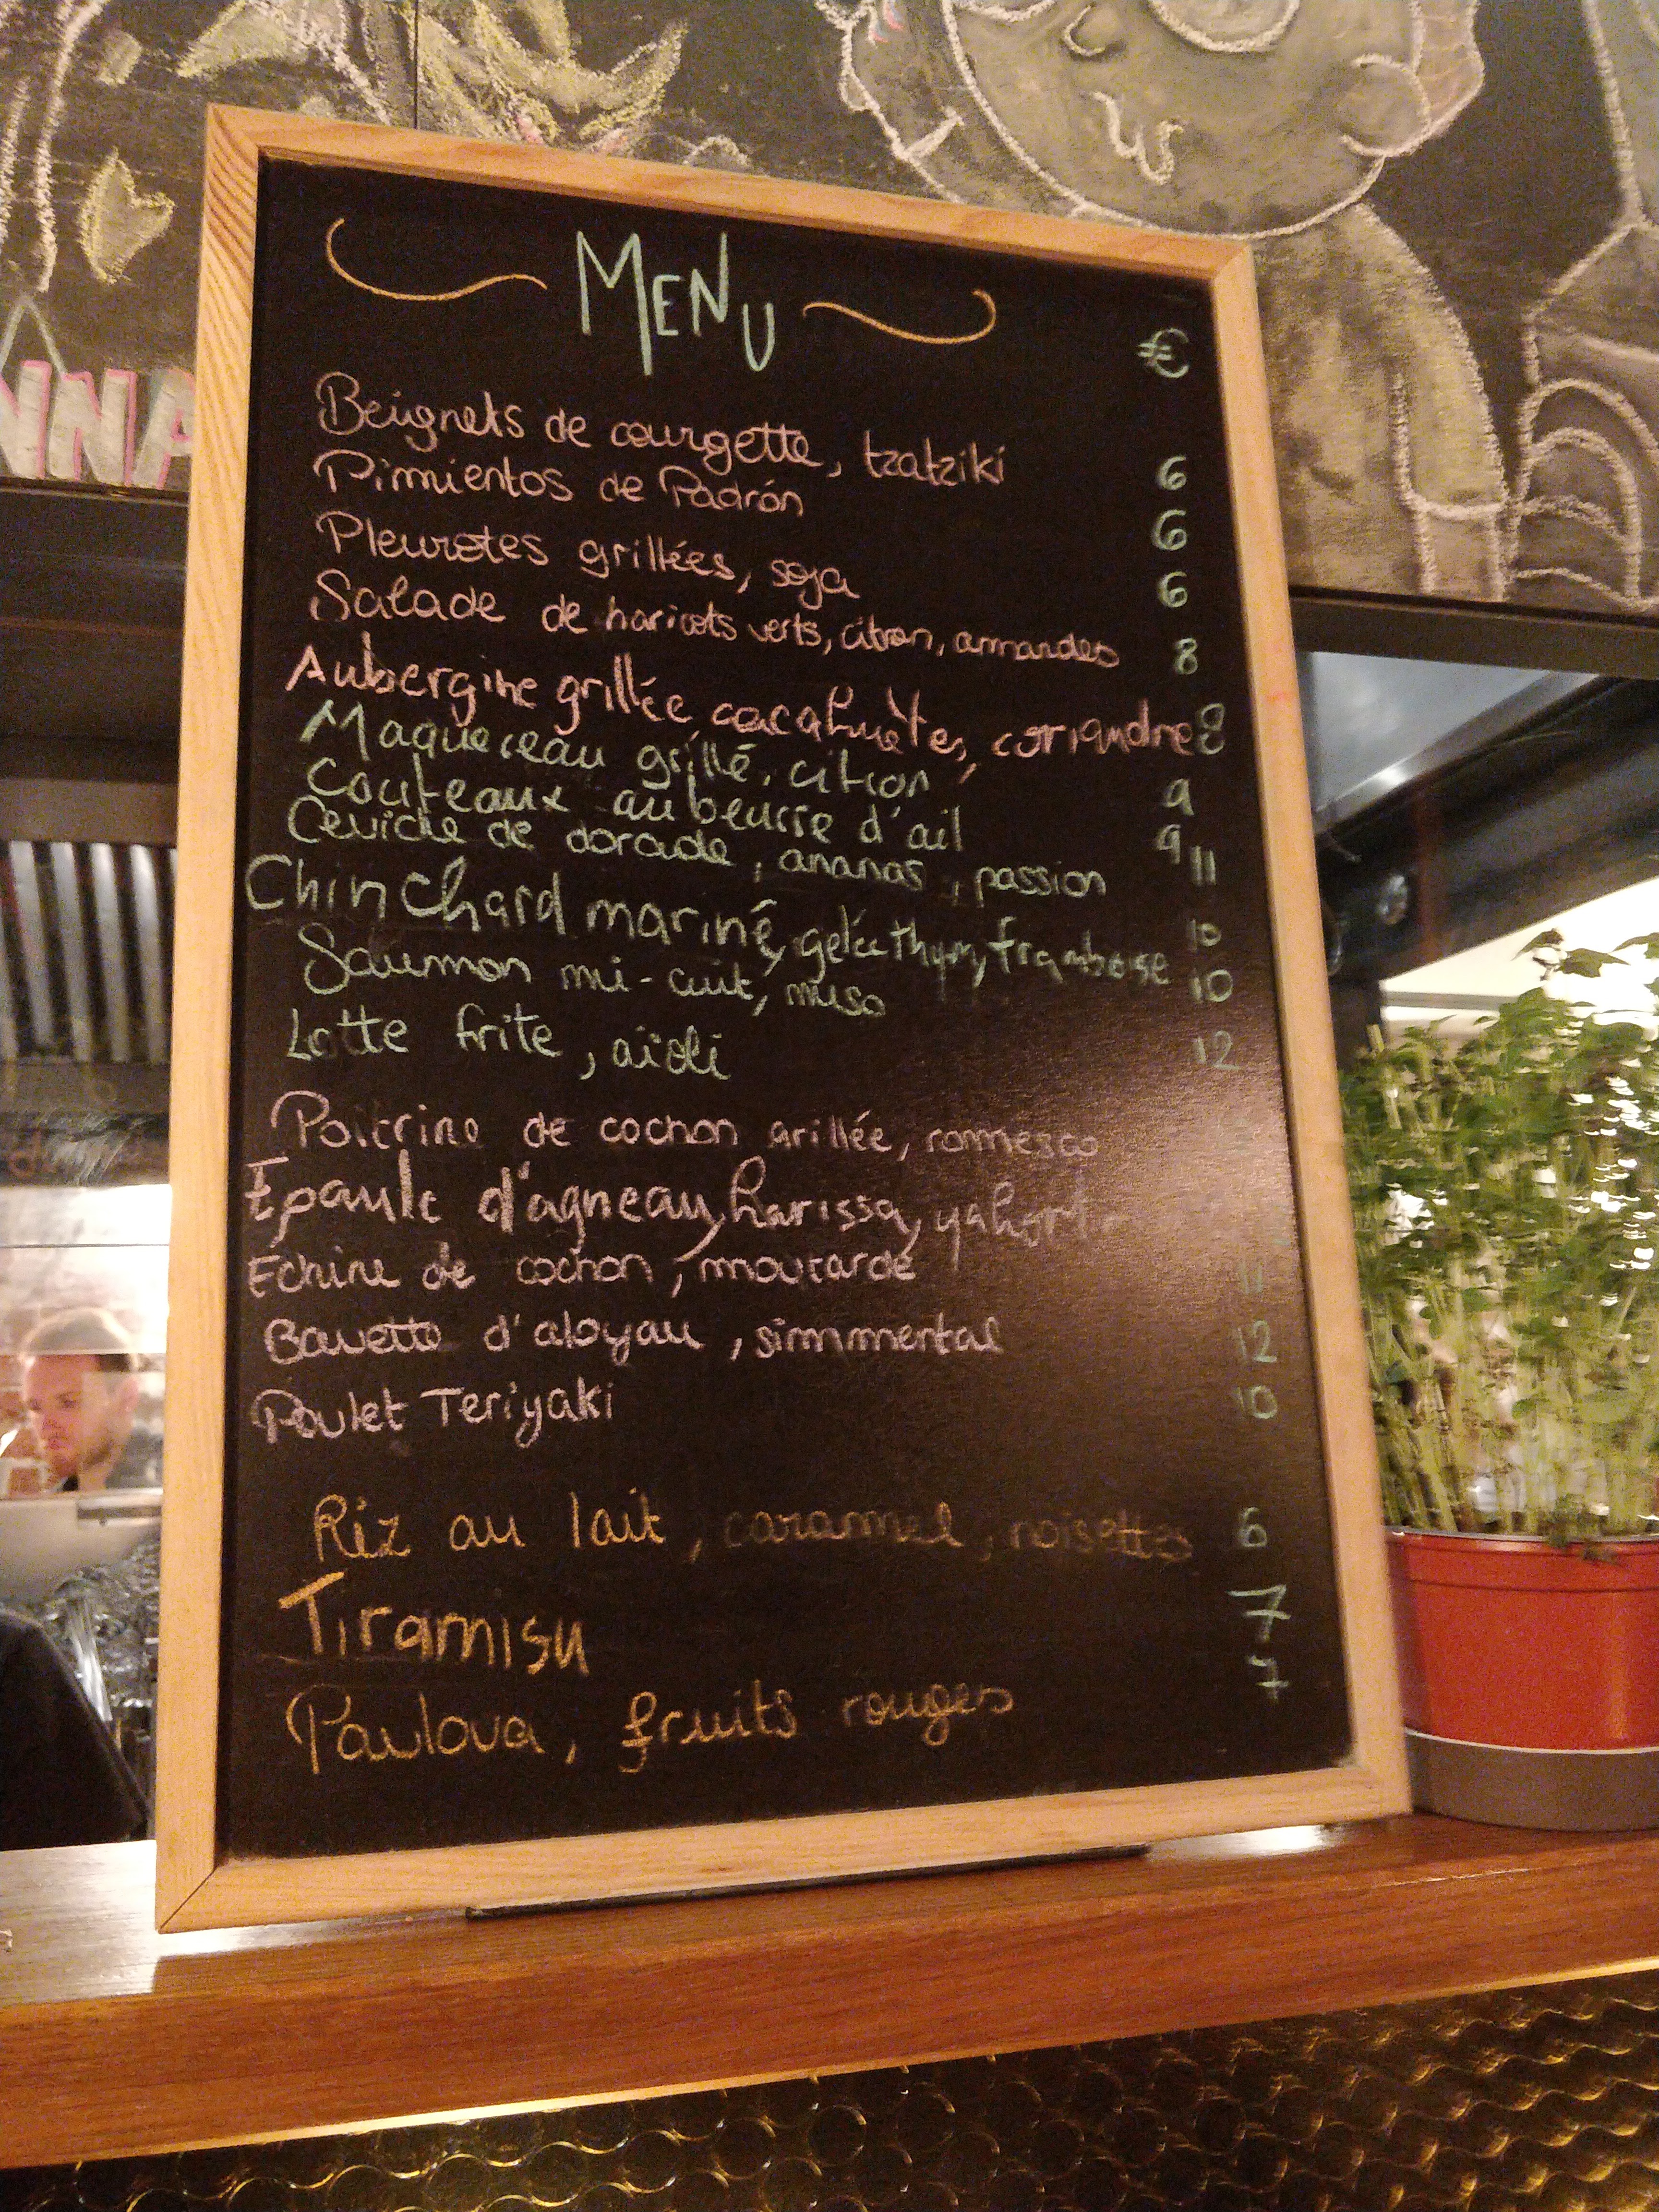 MENU
€
Beignets de courgette, tzatziki 6
Pimientos de Padrón 6
Pleurotes grillées, soja 6
Salade de haricots verts, citron, amandes 8
Aubergine grillée cacahuètes, coriandre 8
Maquereau grillé, citron 9
Couteaux au beurre d'ail 9
Ceviche de dorade, ananas, passion 11
Chinchard mariné, gelée thym, framboise 10
Saumon mi-cuit, miso 10
Lotte frite, aïoli 12
Poitrine de cochon grillée, romesco
Epaule d'agneau, harissa, yahourt
Echine de cochon, moutarde 11
Bavette d'aloyau, simmental 12
Poulet Teriyaki 10
Riz au lait, caramel, noisettes 6
Tiramisu 7
Pavlova, fruits rouges 7